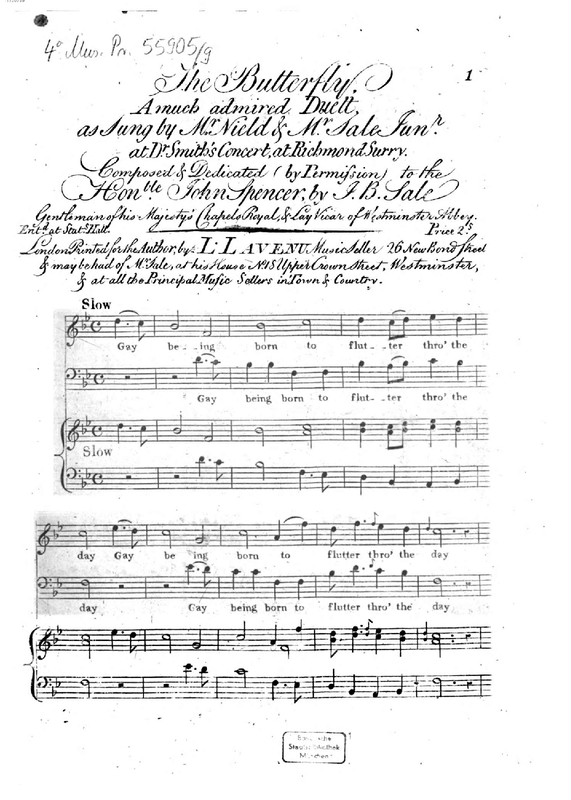 4° Mus. Pr. 55905/9
1
The Butterfly.
A much admired Duett,
as Sung by Mr. Nield & Mr. Sale Junr.
at Dr. Smith's Concert, at Richmond Surry.
Composed & Dedicated (by Permission) to the
Honble. John Spencer, by J. B. Sale
Gentleman of his Majesty's Chapels Royal, & Lay Vicar of Westminster Abbey.
Entd. at Stat. Hall. Price 2s.
London Printed for the Author, by L: LAVENU Music Seller 26 New Bond Street
& may be had of Mr. Sale, at his House No. 18 Upper Crown Street, Westminster,
& at all the Principal Music Sellers in Town & Country.
Slow
Gay be - ing born to flut - ter thro' the
Gay being born to flut - ter thro' the
Slow
day Gay be ing born to flutter thro' the day
day Gay being born to flutter thro' the day
Bayerische
Staatsbibliothek
München